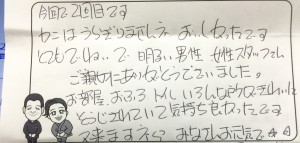 今回で2回目です
カニはうらぎりませんネ おいしかったです
とてもていねいで 明るい男性 女性スタッフさん
ご親切にありがとうございました。
お部屋、おふろ トイレ いろんな所がきれいに
そうじされていて気持ちもよかったです
又来ますネ みなさんお元気で